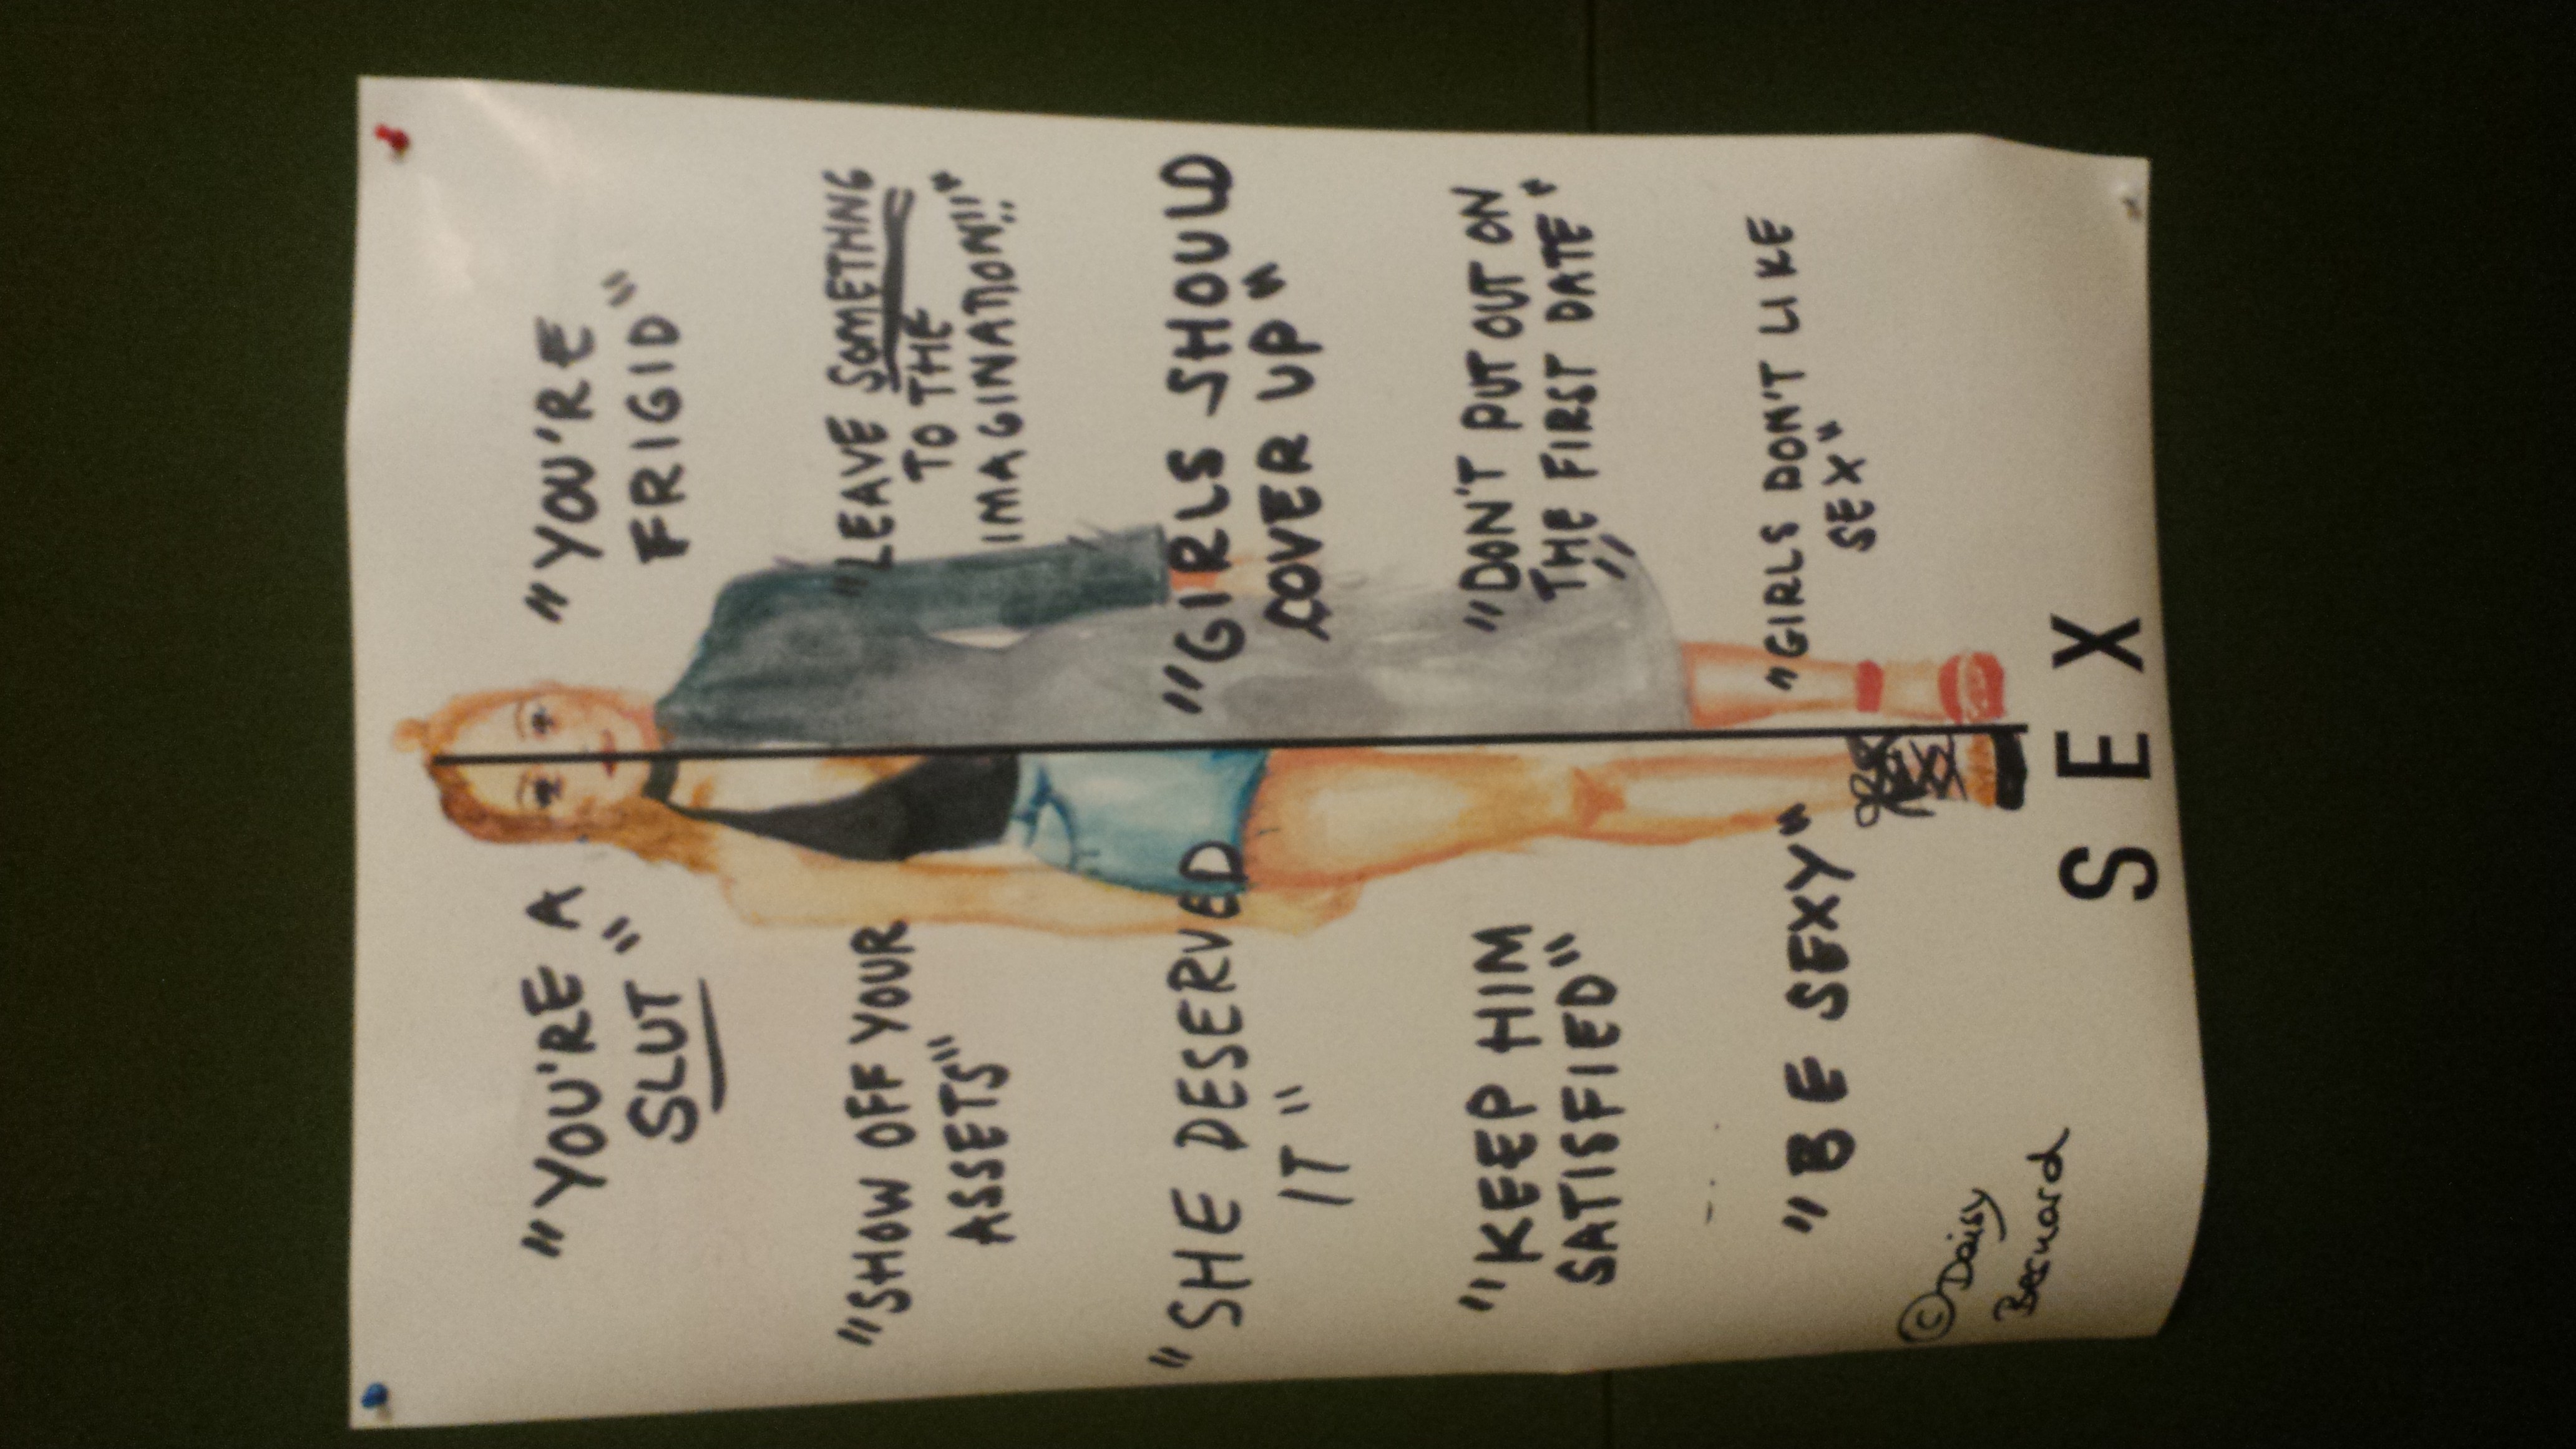 "YOU'RE A
SLUT"
"YOU'RE
FRIGID"
"SHOW OFF YOUR
ASSETS"
"LEAVE SOMETHING
TO THE
IMAGINATION!!"
"SHE DESERVED
IT"
"GIRLS SHOULD
COVER UP"
"KEEP HIM
SATISFIED"
"DON'T PUT OUT ON
THE FIRST DATE"
"BE SEXY"
"GIRLS DON'T LIKE
SEX"
© Daisy
Bernard
SEX